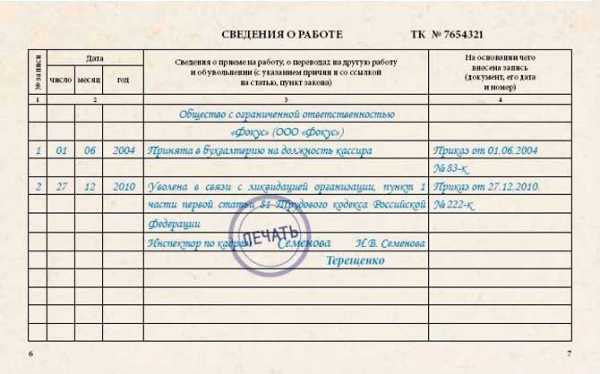 СВЕДЕНИЯ О РАБОТЕ ТК № 7654321
№ записи
Дата
число месяц год
Сведения о приеме на работу, о переводах на другую работу
и об увольнении (с указанием причин и со ссылкой
на статью, пункт закона)
На основании чего
внесена запись
(документ, его дата
и номер)
1 2 3 4
Общество с ограниченной ответственностью
«Фокус» (ООО «Фокус»)
1 01 06 2004 Принята в бухгалтерию на должность кассира Приказ от 01.06.2004
№ 83-к
2 27 12 2010 Уволена в связи с ликвидацией организации, пункт 1 Приказ от 27.12.2010.
части первой статьи 81 Трудового кодекса Российской № 222-к
Федерации
Инспектор по кадрам Семенова И.В. Семенова
ПЕЧАТЬ
Терещенко
6 7